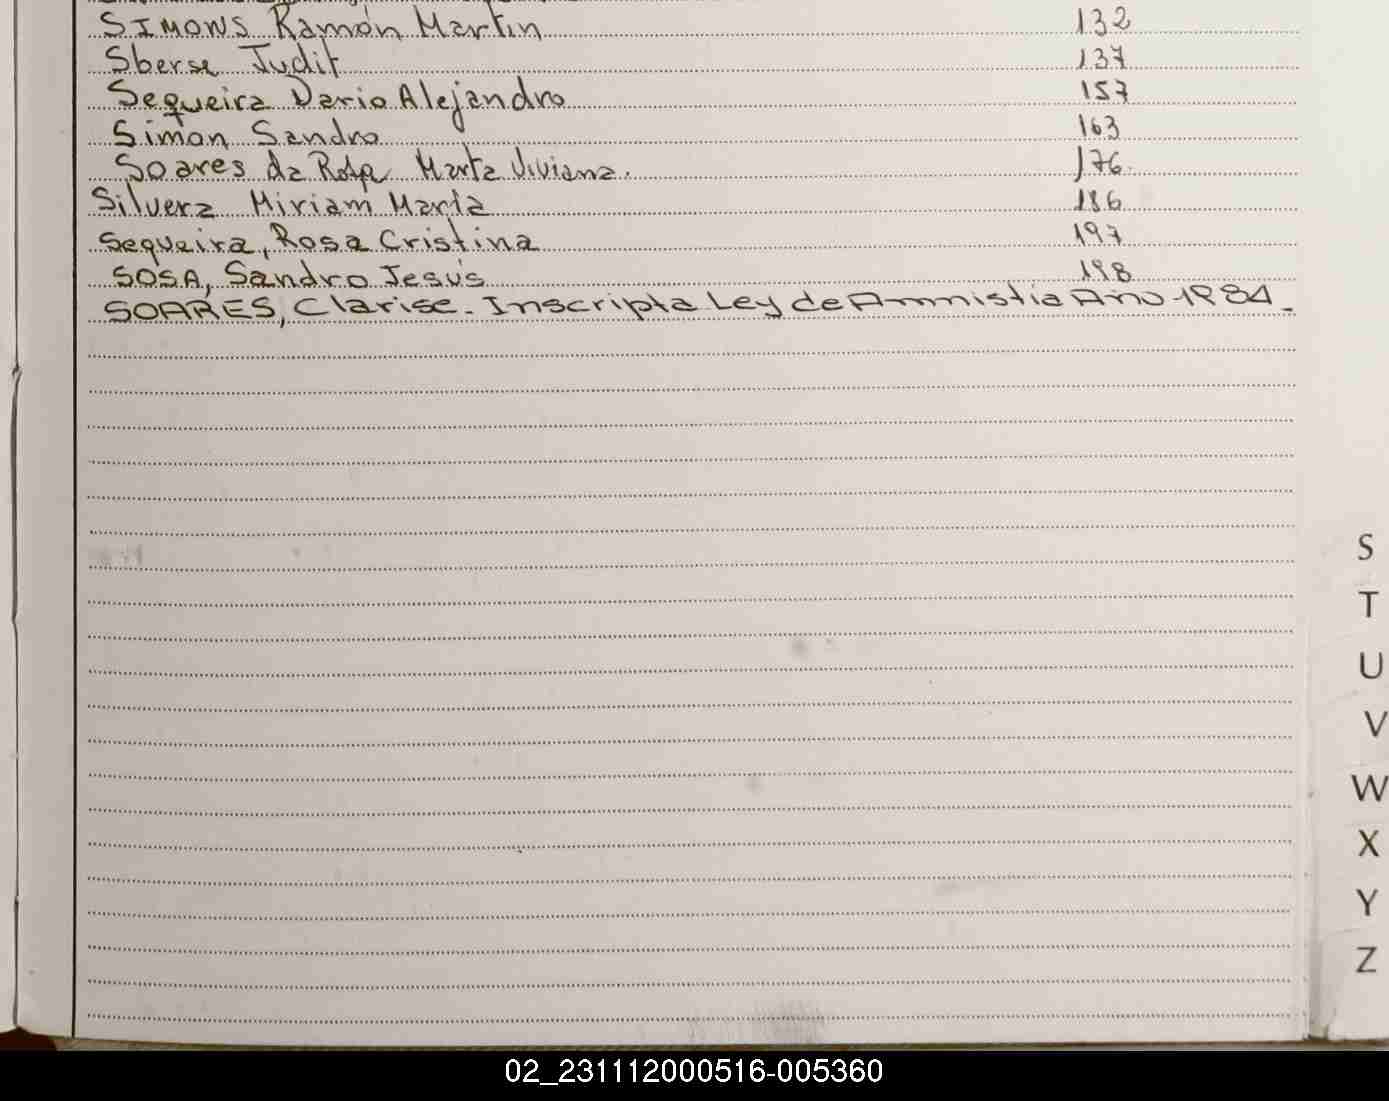 SIMONS Ramón Martin 132
Sberse Judit 137
Sequeira Dario Alejandro 157
Simon Sandro 163
Soares da Marta Viviana. 176.
Silvera Miriam María 186
Sequeira, Rosa Cristina 197
SOSA, Sandro Jesús 198
SOARES, Clarise. Inscripta Ley de Amnistia Año 1984.
S
T
U
V
W
X
Y
Z
02_231112000516-005360